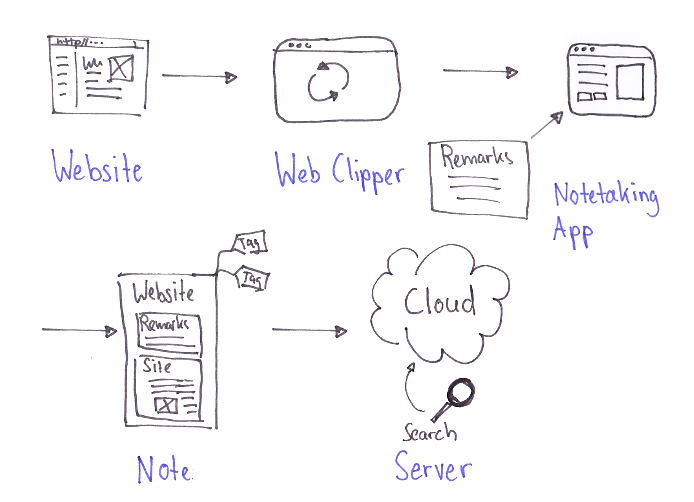 http//...
Website
Web Clipper
Remarks
Notetaking
App
Tag
Tag
Website
Remarks
Site
Note
Cloud
Search
Server